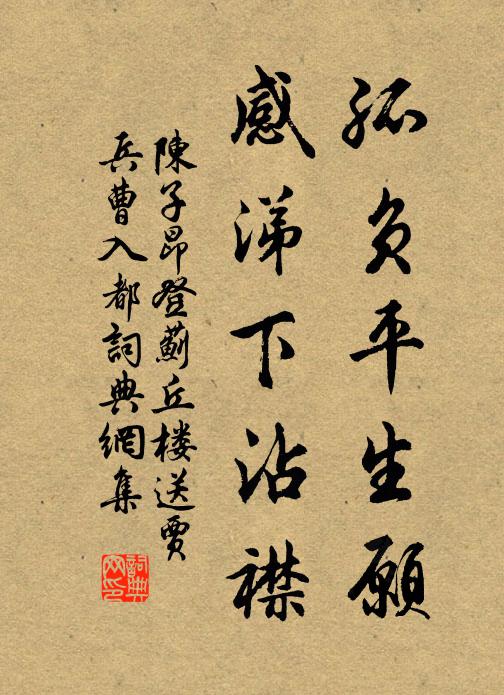 孤負平生願
感涕下沾襟
陳子昂登薊丘楼送賈
兵曹入都詞典網集
詞典
网印